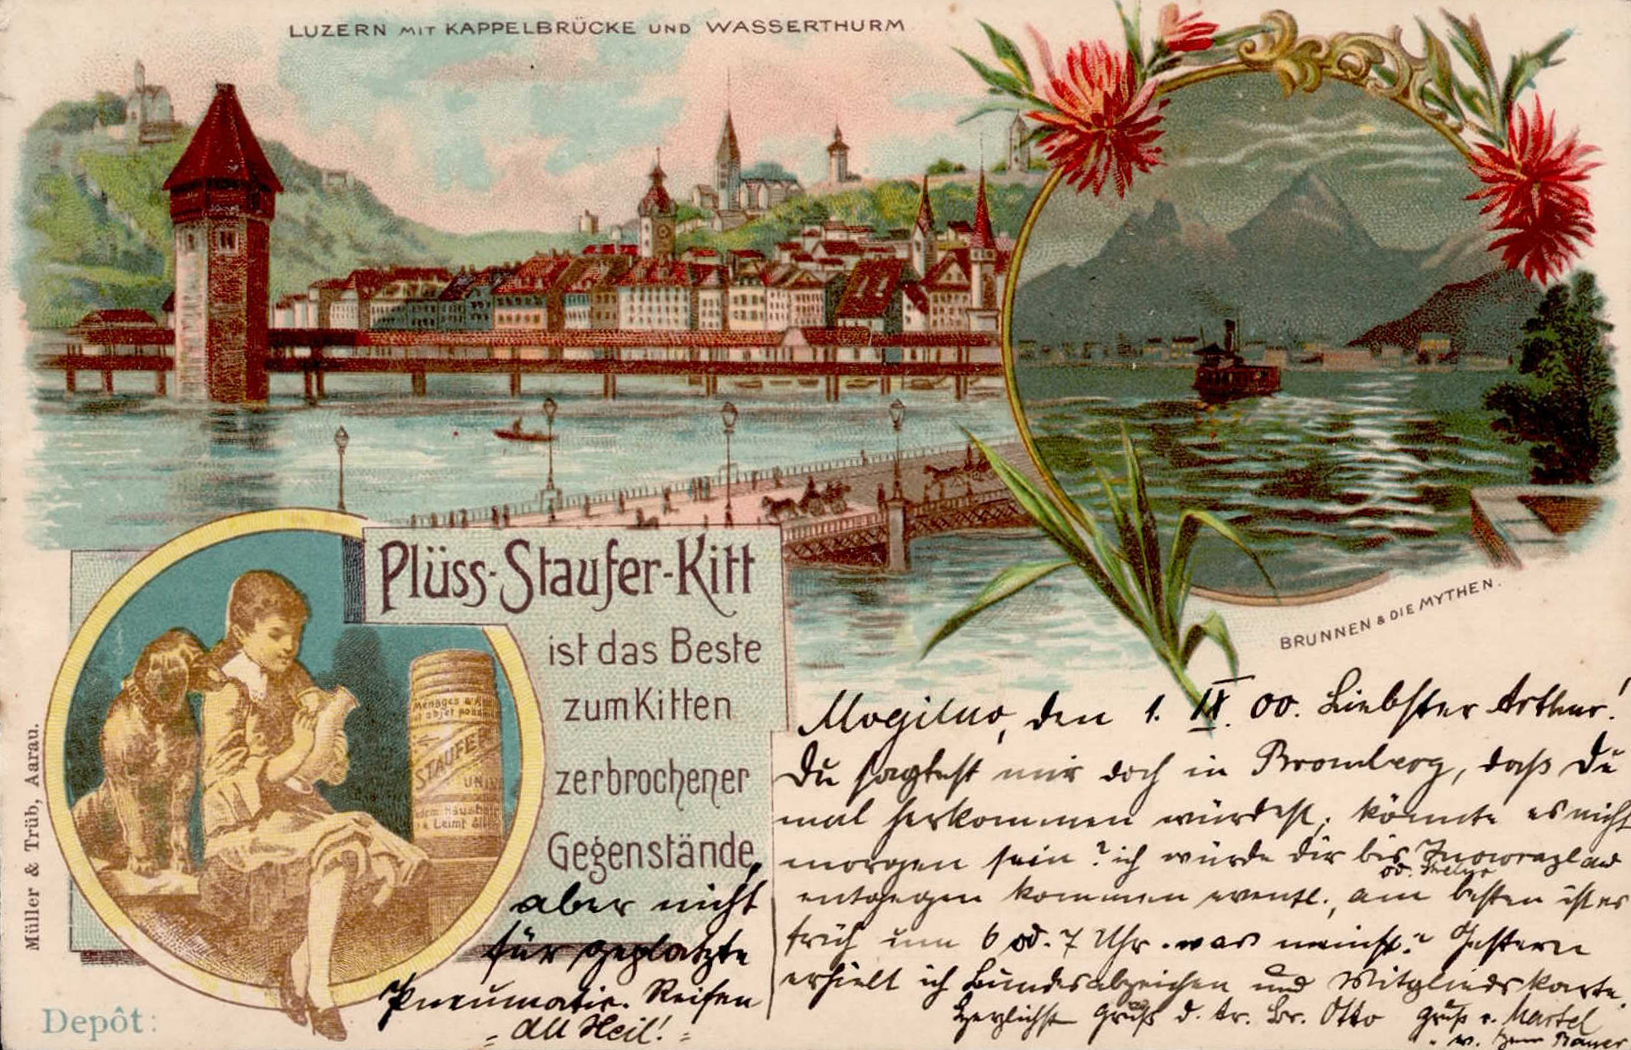 LUZERN MIT KAPPELBRÜCKE UND WASSERTHURM
BRUNNEN & DIE MYTHEN.
Plüss-Staufer-Kitt
ist das Beste
zum Kitten
zerbrochener
Gegenstände,
aber nicht
für geplatzte
Pneumatic-Reifen
"All Heil!"
STAUFER
Müller & Trüb, Aarau.
Depôt:
Mogilno, den 1. IX. 00. Liebster Arthur!
Du sagtest mir doch in Bromberg, daß Du
mal herkommen würdest; könnte es nicht
morgen sein? ich würde dir bis Inowrazlaw
od.
entgegen kommen eventl., am besten ist es
früh um 6 od. 7 Uhr. was meinst? Gestern
erhielt ich Bundesabzeichen und Mitgliedskarte.
Herzlichst Gruß d. tr. Br. Otto Gruß v. Martel